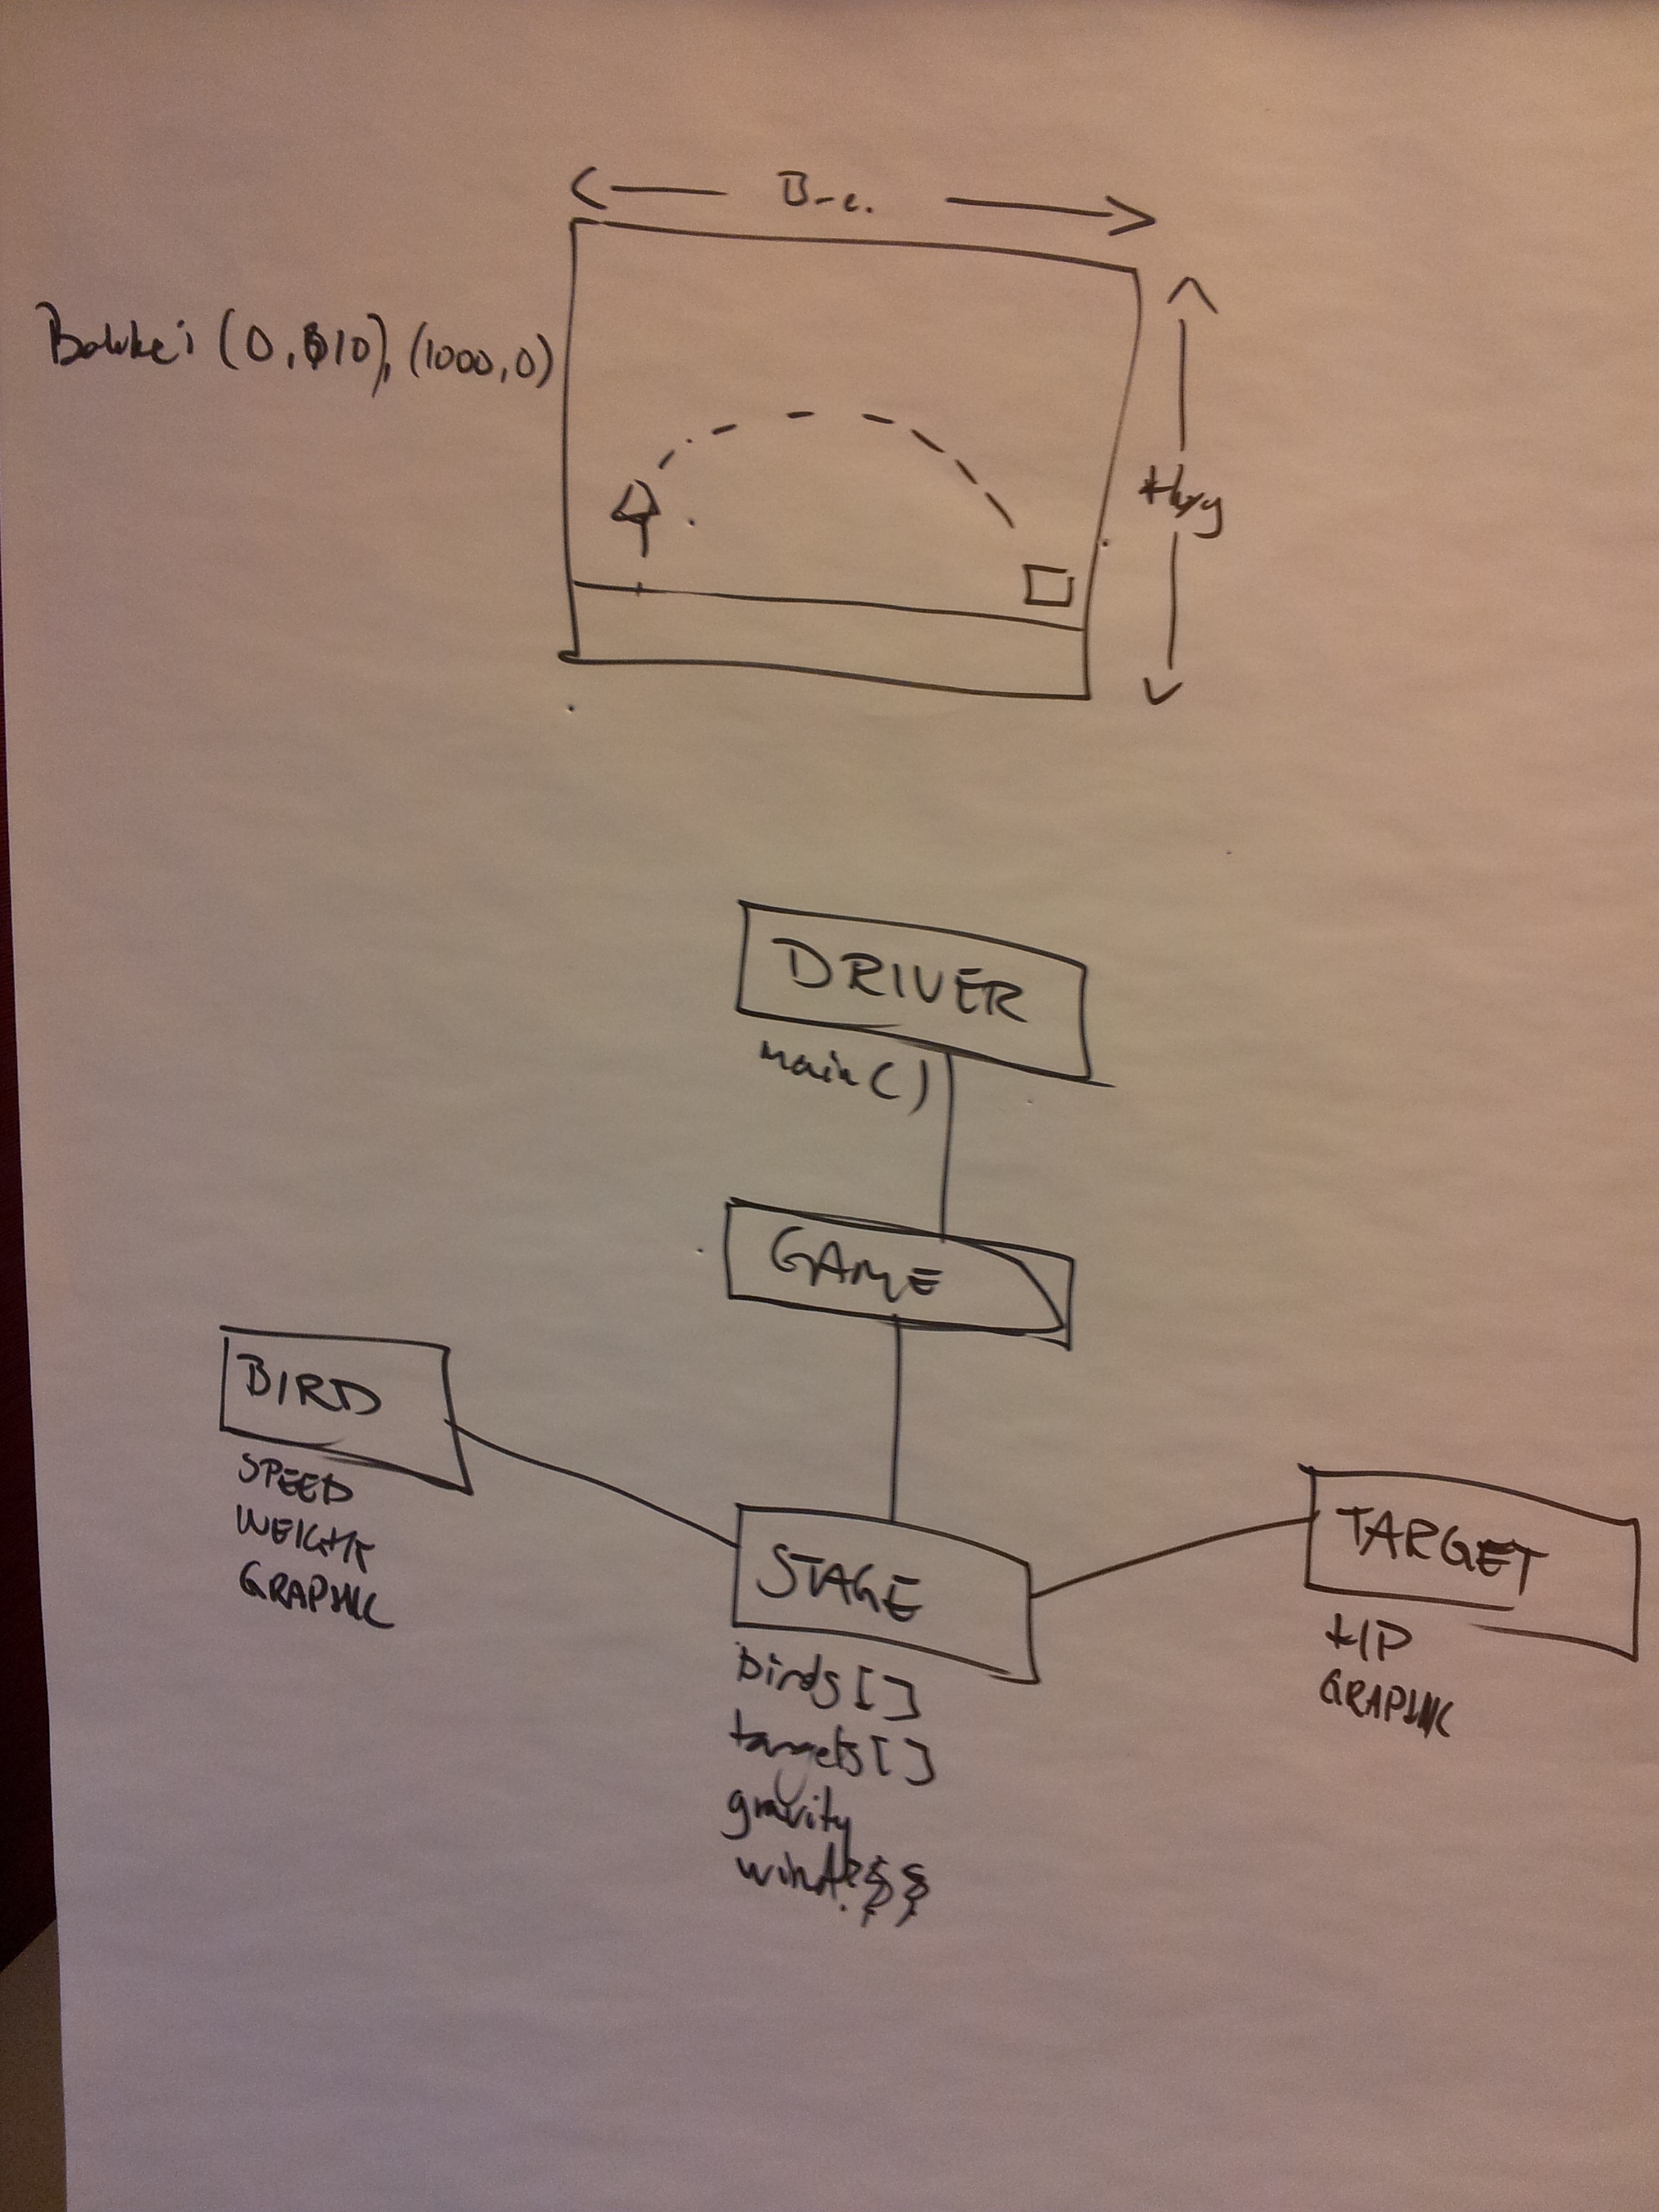 (0, 10), (1000, 0)
DRIVER
main()
GAME
BIRD
SPEED
WEIGHT
GRAPHIC
STAGE
birds[]
targets[]
gravity
TARGET
HP
GRAPHIC